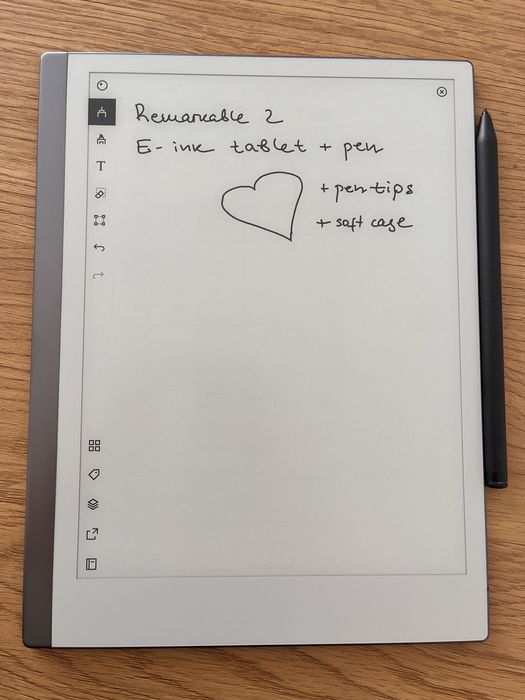 Remarkable 2
E-ink tablet + pen
+ pen tips
+ soft case
T